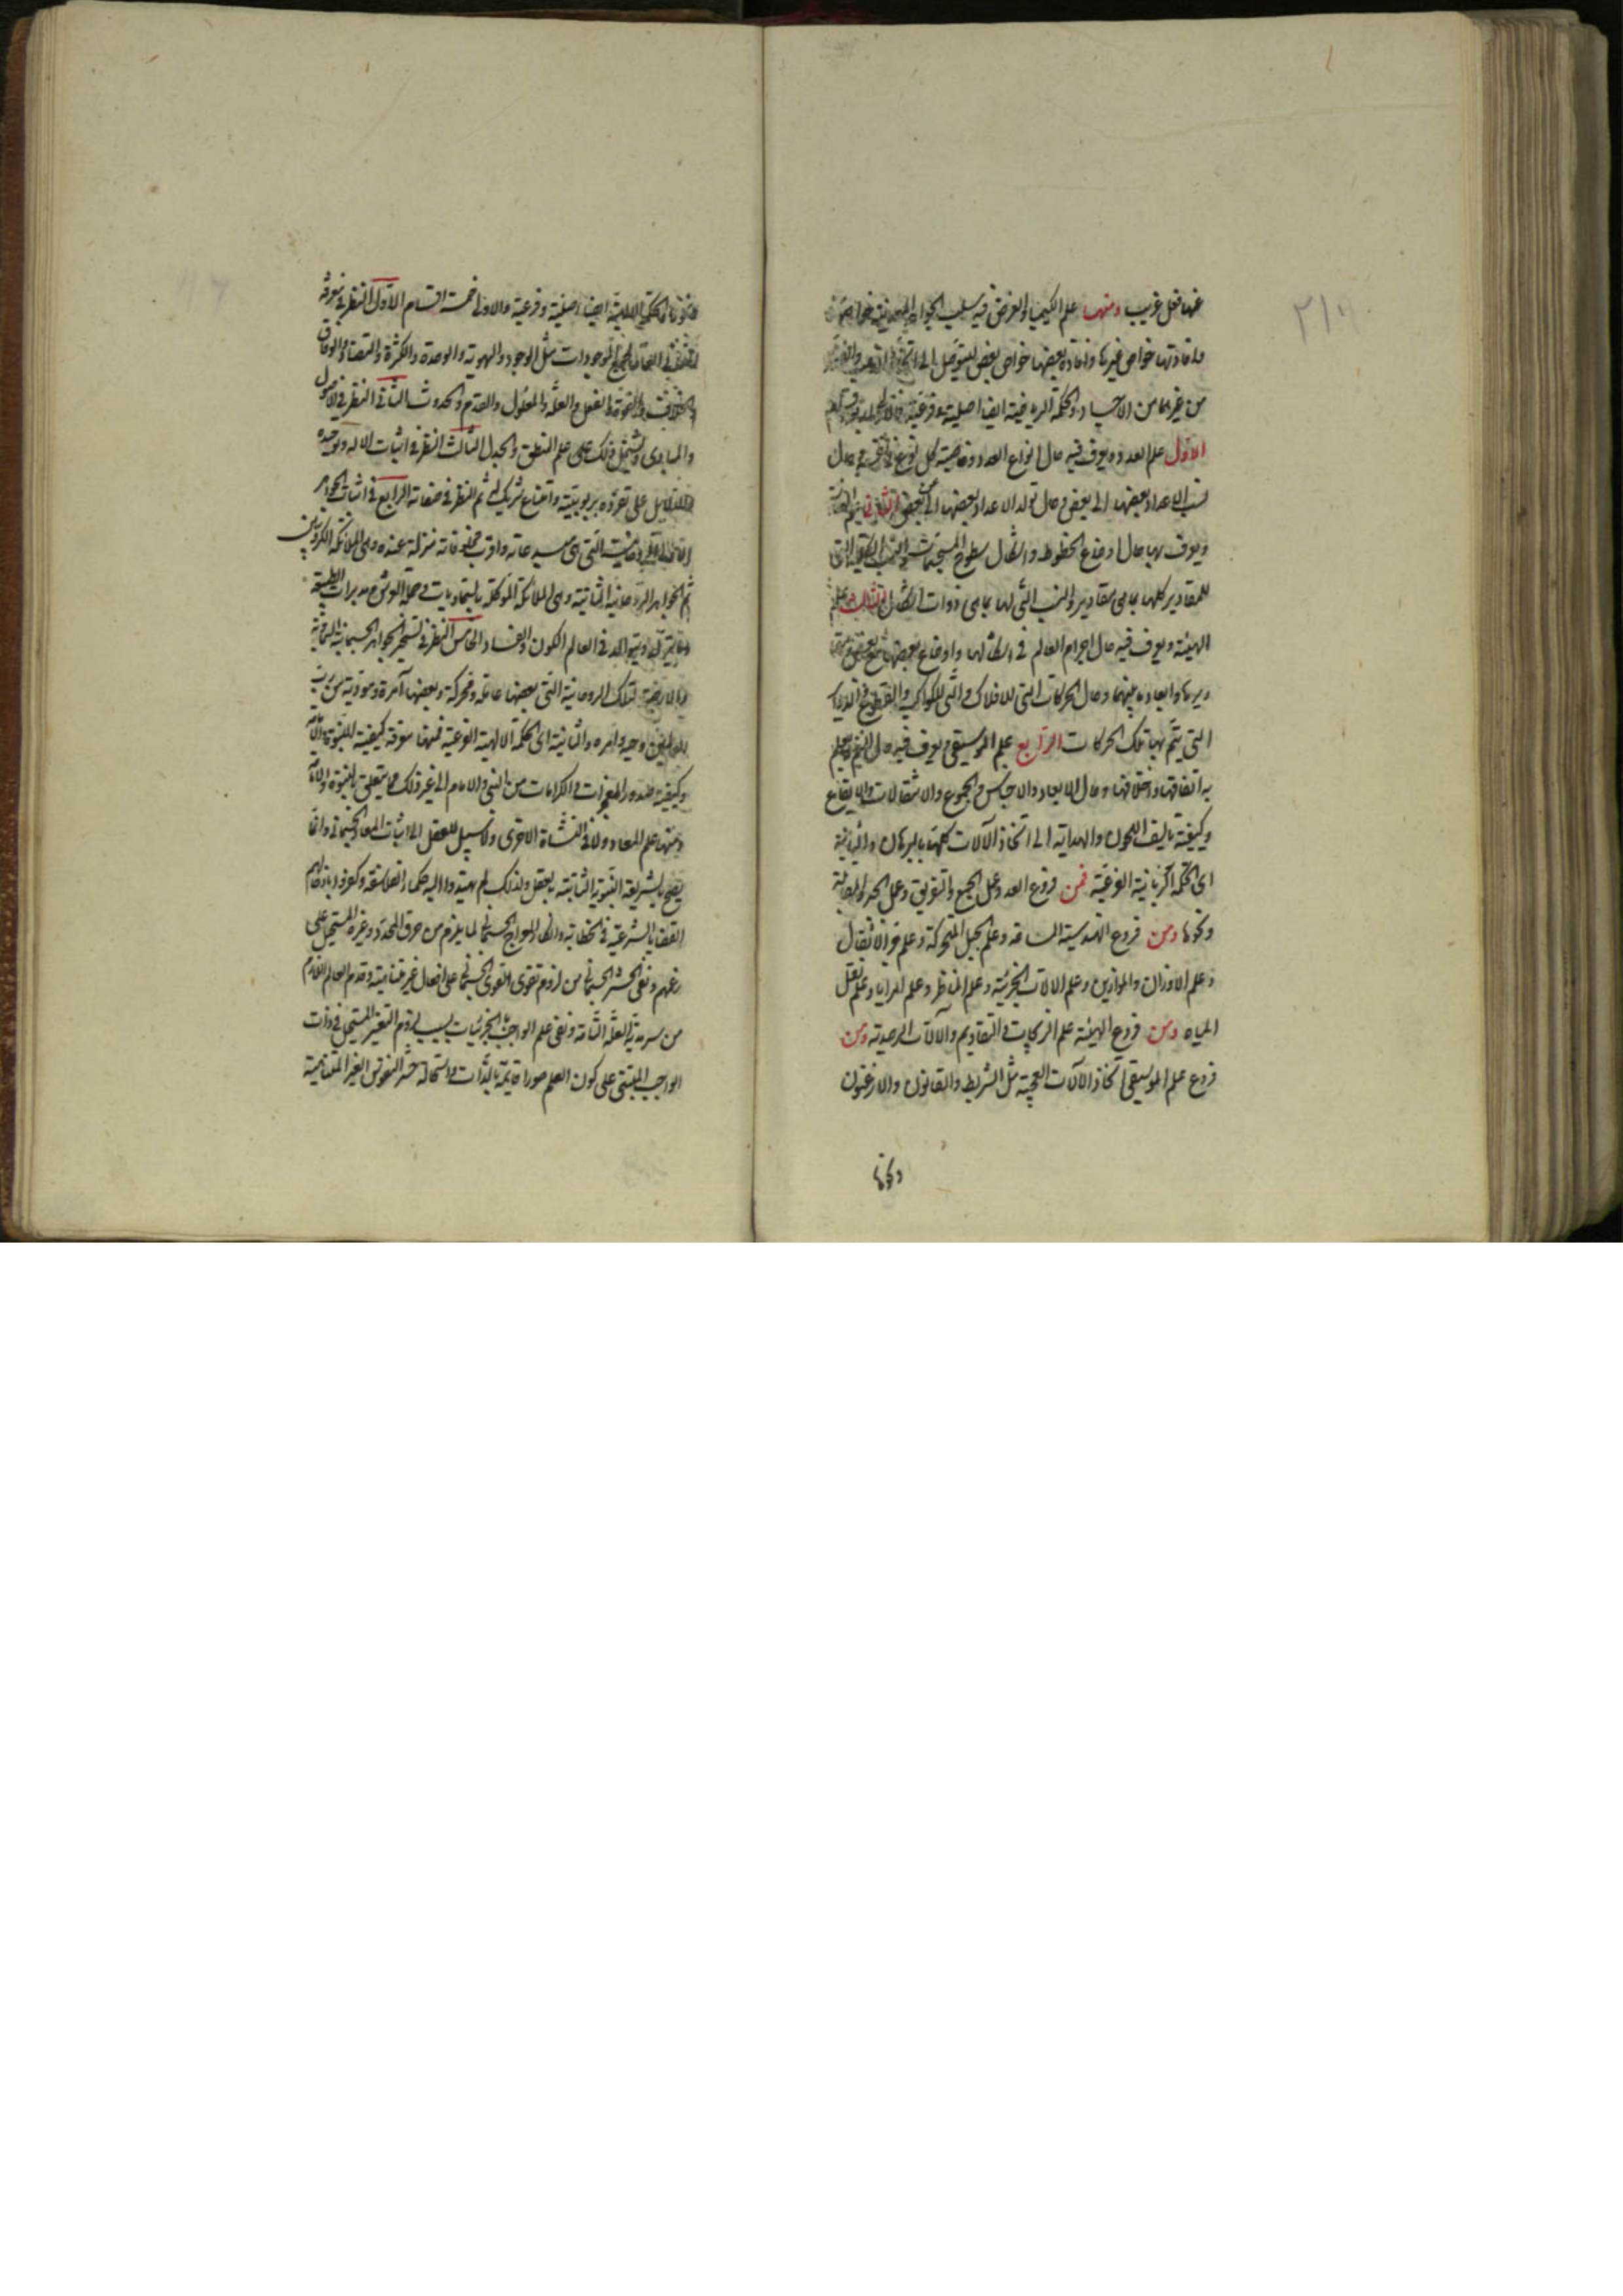 عنها فعل غريب ومنها علم الكيميا والغرض فيه سلب الجواهر المعدنية خواصها
وافادتها خواص غيرها وافادة بعضها خواص بعض ليتوصل الى اتخاذ الذهب والفضة
من غيرهما من الاجساد والحكمة الرياضية ايضا اصلية وفرعية
الاول علم العدد ويعرف فيه حال انواع العدد وخاصية كل نوع في نفسه وحال
نسب الاعداد بعضها الى بعض وحال تولد الاعداد بعضها عن بعض الثاني علم الهندسة
ويعرف بها حال اوضاع الخطوط واشكال سطوح المجسمات والنسب الكلية التي
للمقادير كلها بما هي مقادير والنسب التي لها بما هي ذوات اشكال الثالث علم
الهيئة ويعرف فيه حال اجرام العالم في اشكالها واوضاع بعضها مع بعض
وابعاد ما بينها وحال الحركات التي للافلاك والتي للكواكب والقطوع والدوائر
التي يتم بها تلك الحركات الرابع علم الموسيقى ويعرف فيه حال النغم ويعلم
به اتفاقها واختلافها وحال الابعاد والاجناس والجموع والانتقالات والايقاع
وكيفية تاليف اللحون والهداية الى اتخاذ الآلات كلها بالبرهان والثانية
اى الحكمة الرياضية الفرعية فمن فروع العدد عمل الجمع والتفريق وعمل الجبر والمقابلة
ونحوها ومن فروع الهندسة المساحة وعلم الحيل المتحركة وعلم جر الاثقال
وعلم الاوزان والموازين وعلم الالات الجزئية وعلم المناظر وعلم المرايا وعلم نقل
المياه ومن فروع الهيئة علم الزيجات والتقاويم والآلات الرصدية ومن
فروع علم الموسيقى اتخاذ الآلات العجيبة مثل الشريط والقانون والارغنون
ونحوها
ونحوها والحكمة الالهية ايضا اصلية وفرعية والاولى خمسة اقسام الاول النظر في معرفة
لجميع الموجودات مثل الوجود والهوية والوحدة والكثرة والتضاد والوفاق
والخلاف والقوة والفعل والعلة والمعلول والقدم والحدوث الثاني النظر في الاصول
والمبادى ويشتمل ذلك على علم المنطق والجدل الثالث النظر في اثبات الاله وتوحيده
والدلايل على تفرده بربوبيته وامتناع شريك له ثم النظر في صفاته الرابع في اثبات الجواهر
الروحانية التي هي مبدعاته واقرب مخلوقاته منزلة عنده وهي الملائكة الكروبيين
ثم الجواهر الروحانية الثانية وهي الملائكة الموكلة بالسماويات وحملة العرش ومدبرات الطبيعة
في العالم الكون والفساد الخامس النظر في تسخير الجواهر الجسمانية السماوية
والارضية لتلك الروحانية التي بعضها عاملة ومحركة وبعضها آمرة ومؤدية من رب
العالمين وحيه وامره والثانية اى الحكمة الالهية الفرعية فمنها معرفة كيفية النبوة والامامة
وكيفية صدور المعجزات والكرامات من النبي والامام الى غير ذلك مما يتعلق بالنبوة والامامة
ومنها علم المعاد والنشاة الاخرى ولا سبيل للعقل الى اثبات المعاد الجسماني وانما
يصح بالشريعة النبوية الثابتة بالعقل ولذلك لم يهتدوا اليه حكماء الفلاسفة وكفروا بانكارهم
القضايا الشرعية في الخطابة وانكار المعراج الجسماني لما يلزم من خرق المحدد وغيره المستحيل على
زعمهم ونفي الحشر الجسماني من لزوم تقوى القوى الجسماني على افعال غير متناهية وقدم العالم اللازم
من سرمدية العلة التامة ونفي علم الواجب بالجزئيات بسبب لزوم التغير المستحيل في ذات
الواجب المبتنى على كون العلم صورا قايمة بالذات واستحالة حشر النفوس الغير المتناهية